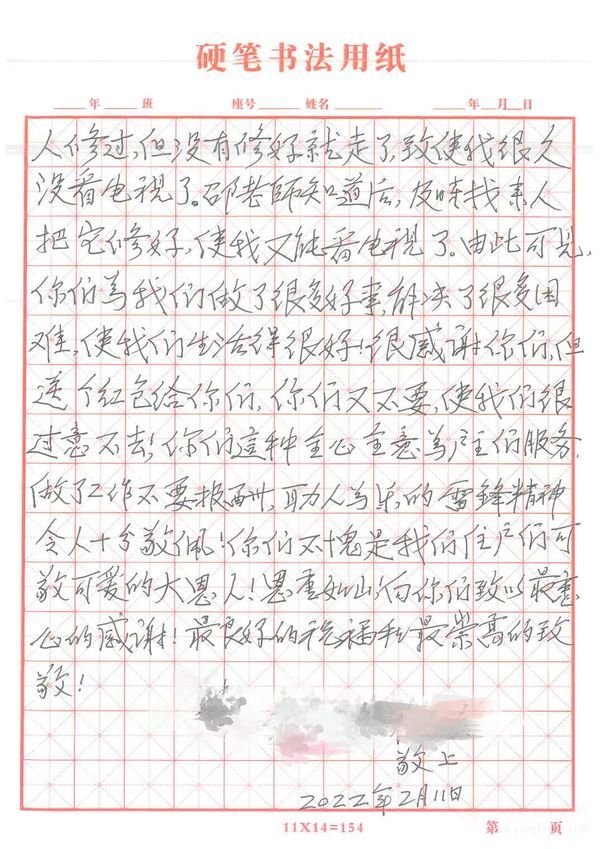 硬笔书法用纸
年 班 座号 姓名 年 月 日
人修过,但没有修好就走了,致使我很久
没看电視了。邵老師知道后,反映找来人
把它修好,使我又能看电視了。由此可见,
你们為我们做了很多好事,解决了很多困
难,使我们生活得很好!很感谢你们,但
送个红包给你们,你们又不要,使我们很
过意不去!你们這种全心全意為户主们服务,
做了工作不要报酬,助人為乐,的雷鋒精神
令人十分敬佩!你们不愧是我们住户们可
敬可爱的大恩人!恩重如山,向你们致以最衷
心的感谢!最良好的祝福和最崇高的致
敬!
敬上
2022年2月11日
11X14=154 第 页